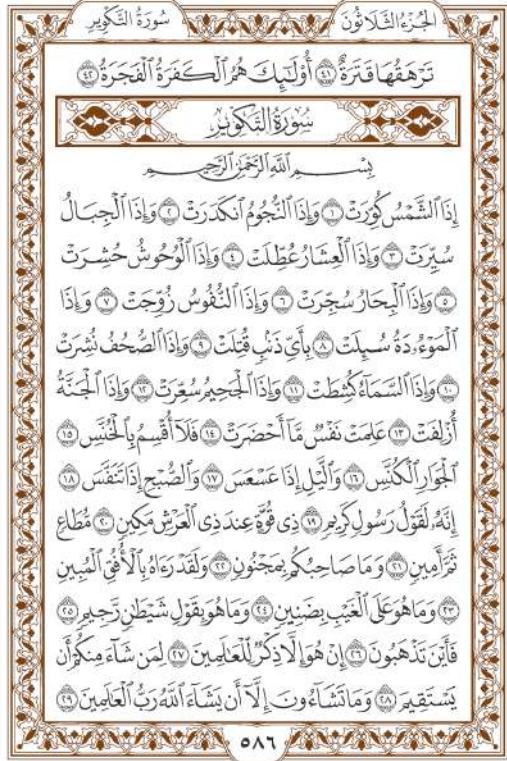 سُورَةُ التَّكْوِيرِ الجُزْءُ الثَّلَاثُونَ
تَرْهَقُهَا قَتَرَةٌ ٤١ أُوْلَٰٓئِكَ هُمُ ٱلْكَفَرَةُ ٱلْفَجَرَةُ ٤٢
سُورَةُ التَّكْوِيرِ
بِسْمِ ٱللَّهِ ٱلرَّحْمَٰنِ ٱلرَّحِيمِ
إِذَا ٱلشَّمْسُ كُوِّرَتْ ١ وَإِذَا ٱلنُّجُومُ ٱنكَدَرَتْ ٢ وَإِذَا ٱلْجِبَالُ
سُيِّرَتْ ٣ وَإِذَا ٱلْعِشَارُ عُطِّلَتْ ٤ وَإِذَا ٱلْوُحُوشُ حُشِرَتْ
٥ وَإِذَا ٱلْبِحَارُ سُجِّرَتْ ٦ وَإِذَا ٱلنُّفُوسُ زُوِّجَتْ ٧ وَإِذَا
ٱلْمَوْءُۥدَةُ سُئِلَتْ ٨ بِأَيِّ ذَنۢبٍ قُتِلَتْ ٩ وَإِذَا ٱلصُّحُفُ نُشِرَتْ
١٠ وَإِذَا ٱلسَّمَآءُ كُشِطَتْ ١١ وَإِذَا ٱلْجَحِيمُ سُعِّرَتْ ١٢ وَإِذَا ٱلْجَنَّةُ
أُزْلِفَتْ ١٣ عَلِمَتْ نَفْسٌ مَّآ أَحْضَرَتْ ١٤ فَلَآ أُقْسِمُ بِٱلْخُنَّسِ ١٥
ٱلْجَوَارِ ٱلْكُنَّسِ ١٦ وَٱلَّيْلِ إِذَا عَسْعَسَ ١٧ وَٱلصُّبْحِ إِذَا تَنَفَّسَ ١٨
إِنَّهُۥ لَقَوْلُ رَسُولٍ كَرِيمٍ ١٩ ذِي قُوَّةٍ عِندَ ذِي ٱلْعَرْشِ مَكِينٍ ٢٠ مُّطَاعٍ
ثَمَّ أَمِينٍ ٢١ وَمَا صَاحِبُكُم بِمَجْنُونٍ ٢٢ وَلَقَدْ رَءَاهُ بِٱلْأُفُقِ ٱلْمُبِينِ
٢٣ وَمَا هُوَ عَلَى ٱلْغَيْبِ بِضَنِينٍ ٢٤ وَمَا هُوَ بِقَوْلِ شَيْطَٰنٍ رَّجِيمٍ ٢٥
فَأَيْنَ تَذْهَبُونَ ٢٦ إِنْ هُوَ إِلَّا ذِكْرٌ لِّلْعَٰلَمِينَ ٢٧ لِمَن شَآءَ مِنكُمْ أَن
يَسْتَقِيمَ ٢٨ وَمَا تَشَآءُونَ إِلَّآ أَن يَشَآءَ ٱللَّهُ رَبُّ ٱلْعَٰلَمِينَ ٢٩
٥٨٦